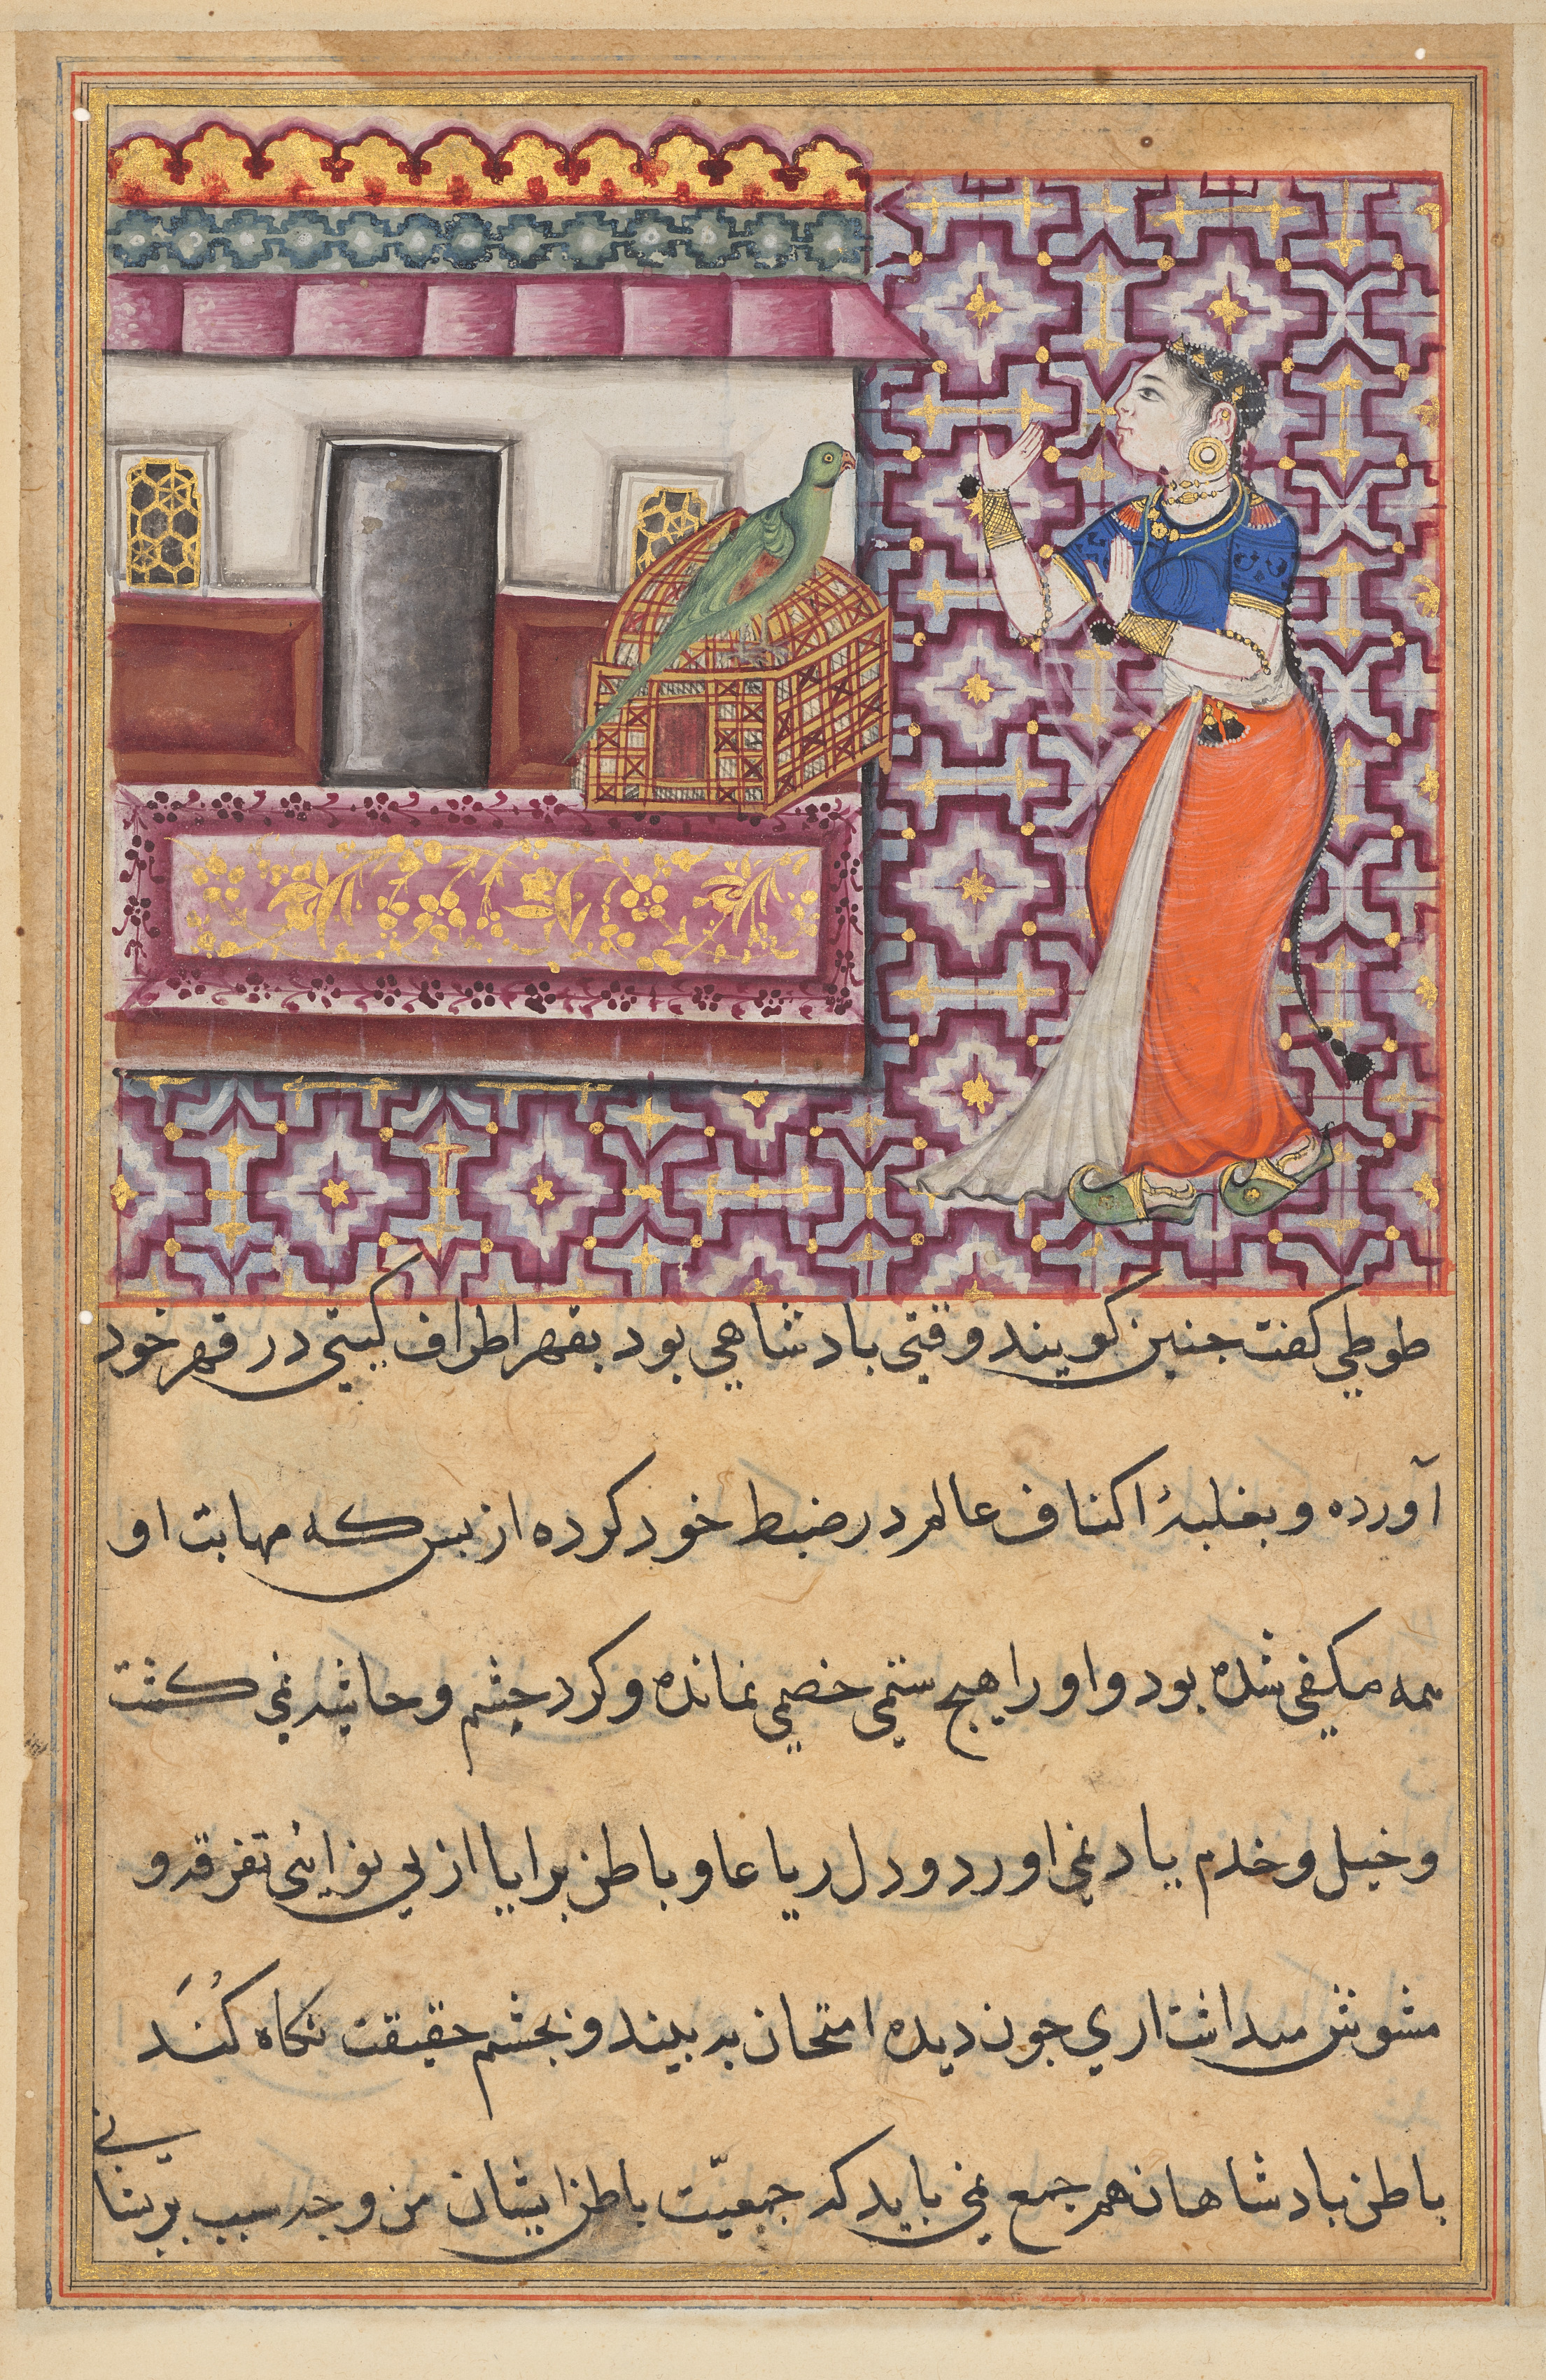 طوطي كفت جنين كويند وقتى بادشاهي بود بقهر اطراف كيتي در قهر خود
آورده و بغلبهٔ اكناف عالم در ضبط خود كرده از بس كه مهابت او
همه مكيفي شده بود و او را هيج ستمى خصمي نمانده و كرد حشم و حاشيه نمي كشت
و خيل و خدم ياد نمي اورد و دل رعايا و باطن برايا از بي نوائى تفرقه و
مشوش ميداشت اري جون ديده امتحان به بيند و بجشم حقيقت نكاه كُنَد
باطن بادشاهان هم جمع نمي بايد كه جمعيّت باطن ايشان من وجه سبب بريشانى